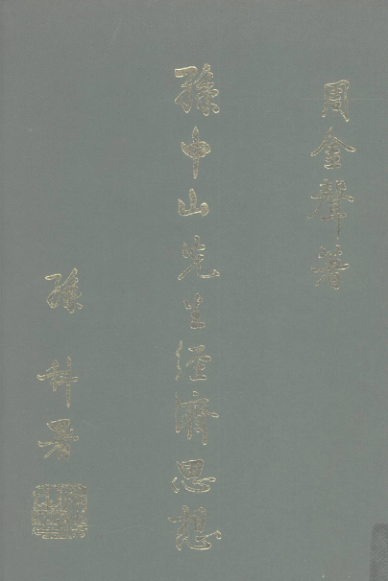 周金聲著
孫中山先生經濟思想
孫科署